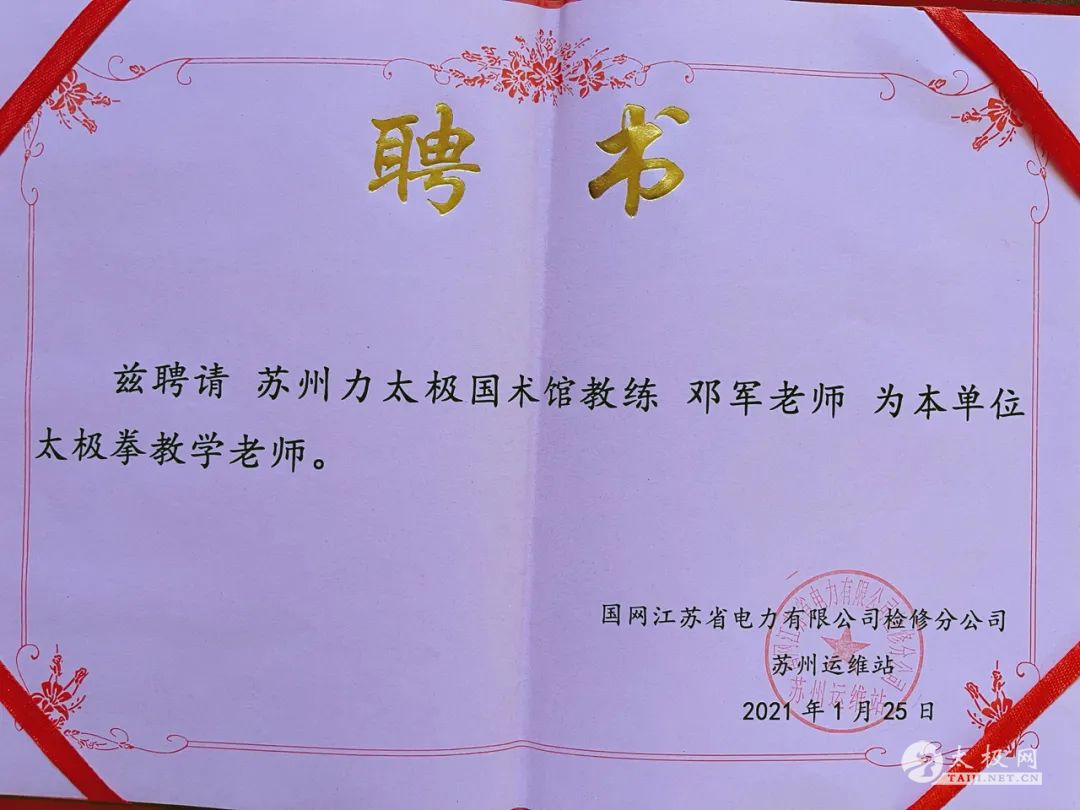 聘书
兹聘请 苏州力太极国术馆教练 邓军老师 为本单位
太极拳教学老师。
国网江苏省电力有限公司检修分公司
苏州运维站
2021年1月25日
国网江苏省电力有限公司检修分公司
苏州运维站
太极网
TAIJI.NET.CN